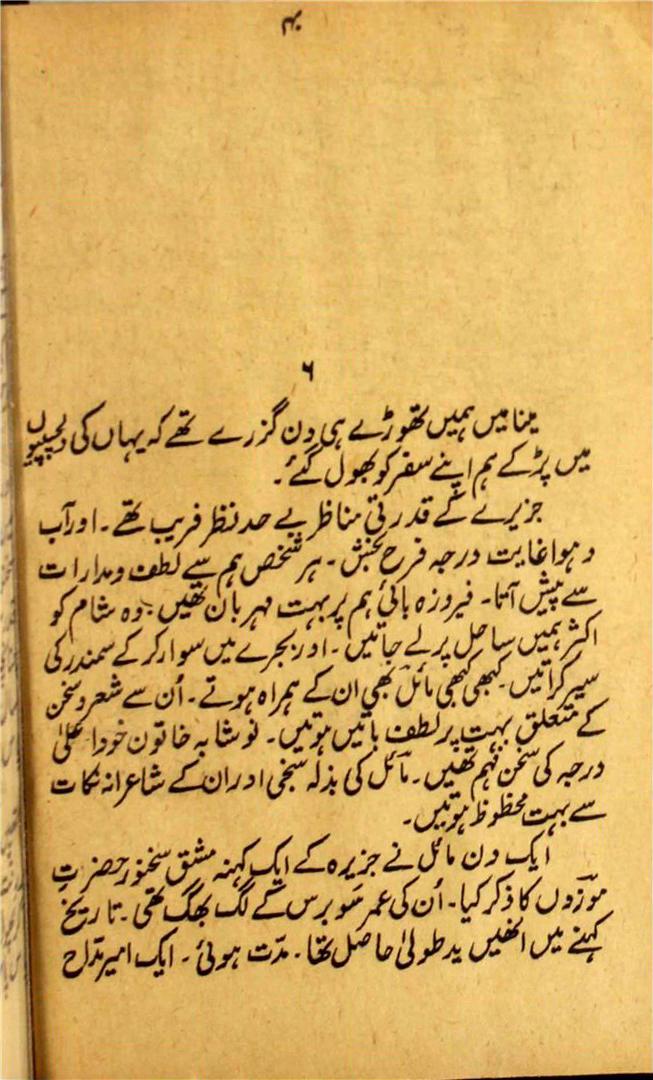 ۶
مینا میں ہمیں تھوڑے ہی دن گزرے تھے کہ یہاں کی دلچسپیوں
میں پڑ کے ہم اپنے سفر کو بھول گئے۔
جزیرے کے قدرتی مناظر بے حد نظر فریب تھے۔ اور آب
و ہوا غایت درجہ فرح بخش۔ ہر شخص ہم سے لطف و مدارات
سے پیش آتا۔ فیروزہ بائی ہم پر بہت مہربان تھیں۔ وہ شام کو
اکثر ہمیں ساحل پر لے جاتیں۔ اور بجرے میں سوار کر کے سمندر کی
سیر کراتیں۔ کبھی کبھی مائل بھی ان کے ہمراہ ہوتے۔ اُن سے شعر و سخن
کے متعلق بہت پر لطف باتیں ہوتیں۔ نوشابہ خاتون خود اعلیٰ
درجہ کی سخن فہم تھیں۔ مائل کی بذلہ سنجی اور ان کے شاعرانہ نکات
سے بہت محظوظ ہوتیں۔
ایک دن مائل نے جزیرہ کے ایک کہنہ مشق سخنور حضرتِ
موزوں کا ذکر کیا۔ اُن کی عمر سَو برس کے لگ بھگ تھی۔ تاریخ
کہنے میں انھیں یدِ طولیٰ حاصل تھا۔ مدّت ہوئی۔ ایک امیر مدّاح